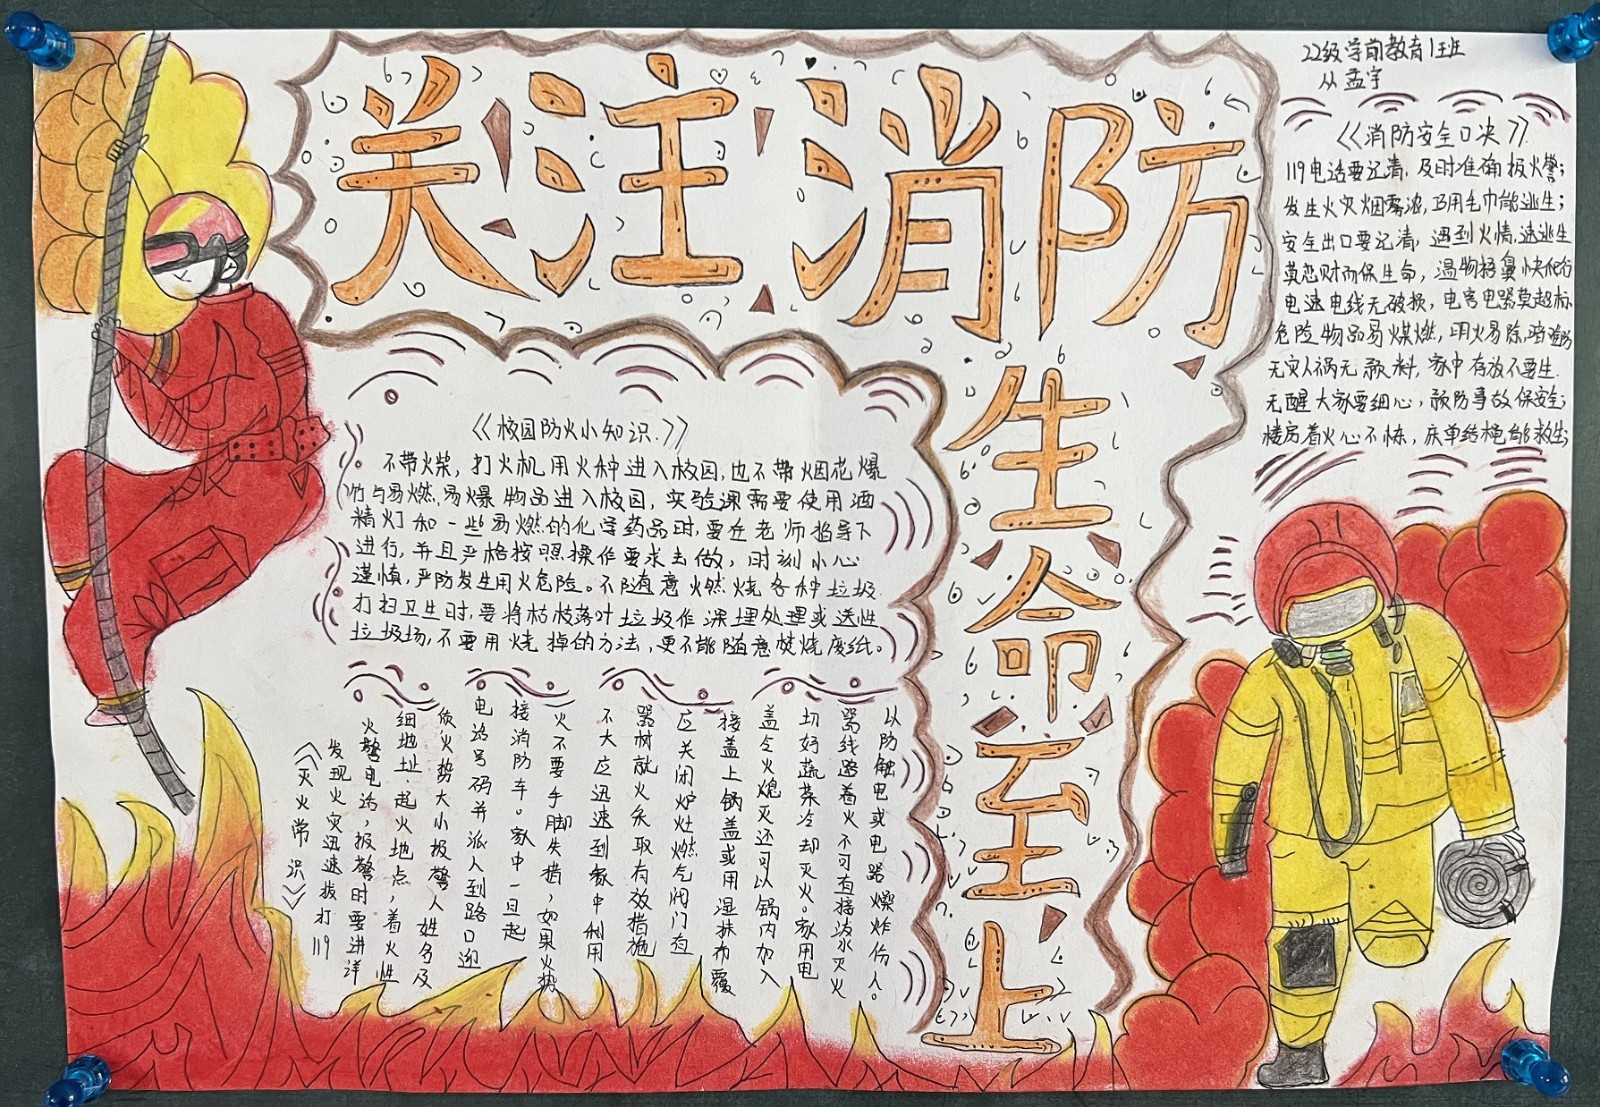 关注消防
生命至上
22级学前教育1班
从孟宇
《消防安全口决》
119电话要记清,及时准确报火警;
发生火灾烟雾浓,卫用毛巾能逃生;
安全出口要记清,遇到火情速逃生
莫恋财而保生命,湿物捂鼻快爬行
电速电线无破损,电害电器莫超标
危险物品易燃,明火易除,
无灾人祸无预料,家中存放不要生.
无醒大家要细心,预防事故保安全;
楼房着火心不栋,床单结绳能救生;
《校园防火小知识.》
不带火柴,打火机用火种进入校园,也不带烟花爆
竹与易燃、易爆物品进入校园,实验课需要使用酒
精灯和一些易燃的化学药品时,要在老师指导下
进行,并且严格按照操作要求去做,时刻小心
谨慎,严防发生用火危险。不随意燃烧各种垃圾
打扫卫生时,要将枯枝落叶垃圾作深埋处理或送性
垃圾场,不要用烧掉的方法,更不能随意焚烧废纸。
《灭火常识》
发现火灾迅速拔打119
火警电话,报警时要讲详
细地址,起火地点,着火性
侬,火势大小报警人姓名及
电话号码并派人到路口迎
接消防车。家中一旦起
火不要手脚失措,如果火势
不大应迅速到家中利用
器树就火永取有效措施
应关闭炉灶燃气阀门有
接盖上锅盖或用湿抹布覆
盖令火熄灭还可以锅内加入
切好蔬菜冷却灭火。家用电
器线路着火不可有接泼水灭火
以防触电或电器爆炸伤人。